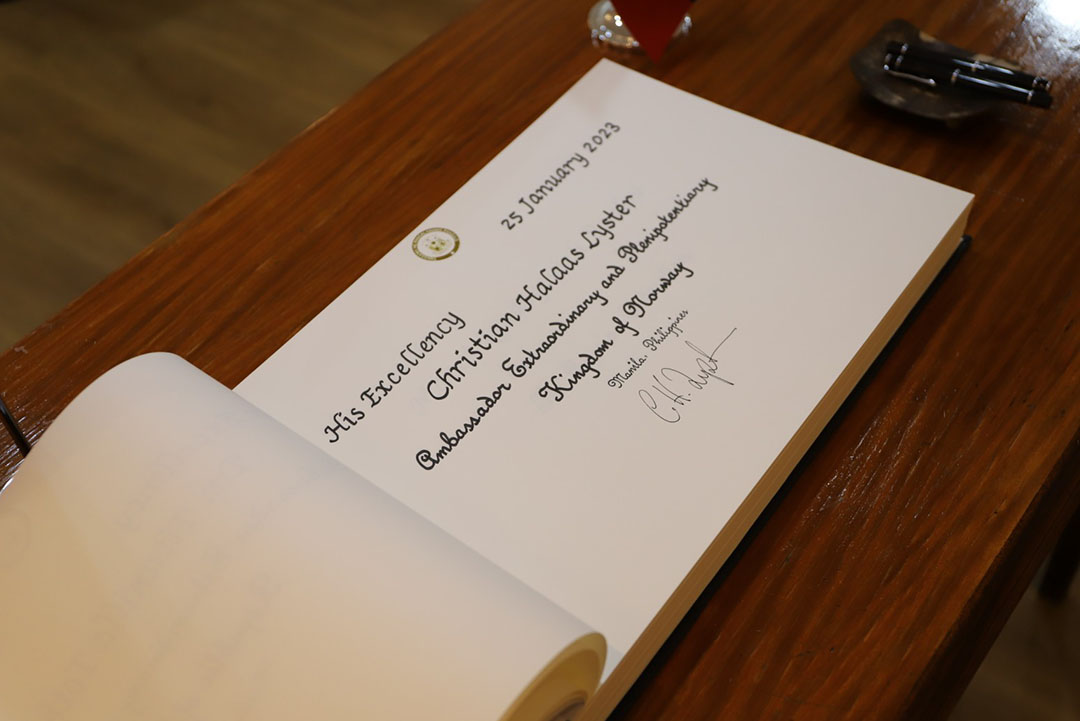 25 January 2023
His Excellency
Christian Halaas Lyster
Ambassador Extraordinary and Plenipotentiary
Kingdom of Norway
Manila, Philippines